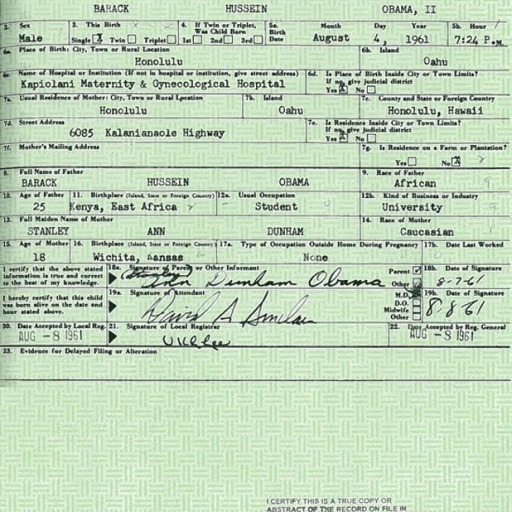 BARACK HUSSEIN OBAMA, II
2. Sex 3. This Birth 4. If Twin or Triplet, Was Child Born 5a. Birth Date Month Day Year 5b. Hour
Male Single X Twin Triplet 1st 2nd 3rd August 4, 1961 7:24 P.M.
6a. Place of Birth: City, Town or Rural Location 6b. Island
Honolulu Oahu
6c. Name of Hospital or Institution (If not in hospital or institution, give street address) 6d. Is Place of Birth Inside City or Town Limits? If no, give judicial district
Kapiolani Maternity & Gynecological Hospital Yes X No
7a. Usual Residence of Mother: City, Town or Rural Location 7b. Island 7c. County and State or Foreign Country
Honolulu Oahu Honolulu, Hawaii
7d. Street Address 7e. Is Residence Inside City or Town Limits? If no, give judicial district
6085 Kalanianaole Highway Yes X No
7f. Mother's Mailing Address 7g. Is Residence on a Farm or Plantation?
Yes No X
8. Full Name of Father 9. Race of Father
BARACK HUSSEIN OBAMA African
10. Age of Father 11. Birthplace (Island, State or Foreign Country) 12a. Usual Occupation 12b. Kind of Business or Industry
25 Kenya, East Africa Student University
13. Full Maiden Name of Mother 14. Race of Mother
STANLEY ANN DUNHAM Caucasian
15. Age of Mother 16. Birthplace (Island, State or Foreign Country) 17a. Type of Occupation Outside Home During Pregnancy 17b. Date Last Worked
18 Wichita, Kansas None
I certify that the above stated information is true and correct to the best of my knowledge. 18a. Signature of Parent or Other Informant Parent Other 18b. Date of Signature
(Stanley) Ann Dunham Obama 8-7-61
I hereby certify that this child was born alive on the date and hour stated above. 19a. Signature of Attendant M.D. D.O. Midwife Other 19b. Date of Signature
David A Sinclair 8-8-61
20. Date Accepted by Local Reg. 21. Signature of Local Registrar 22. Date Accepted by Reg. General
AUG -8 1961 U K L Lee AUG -8 1961
23. Evidence for Delayed Filing or Alteration
I CERTIFY THIS IS A TRUE COPY OR
ABSTRACT OF THE RECORD ON FILE IN